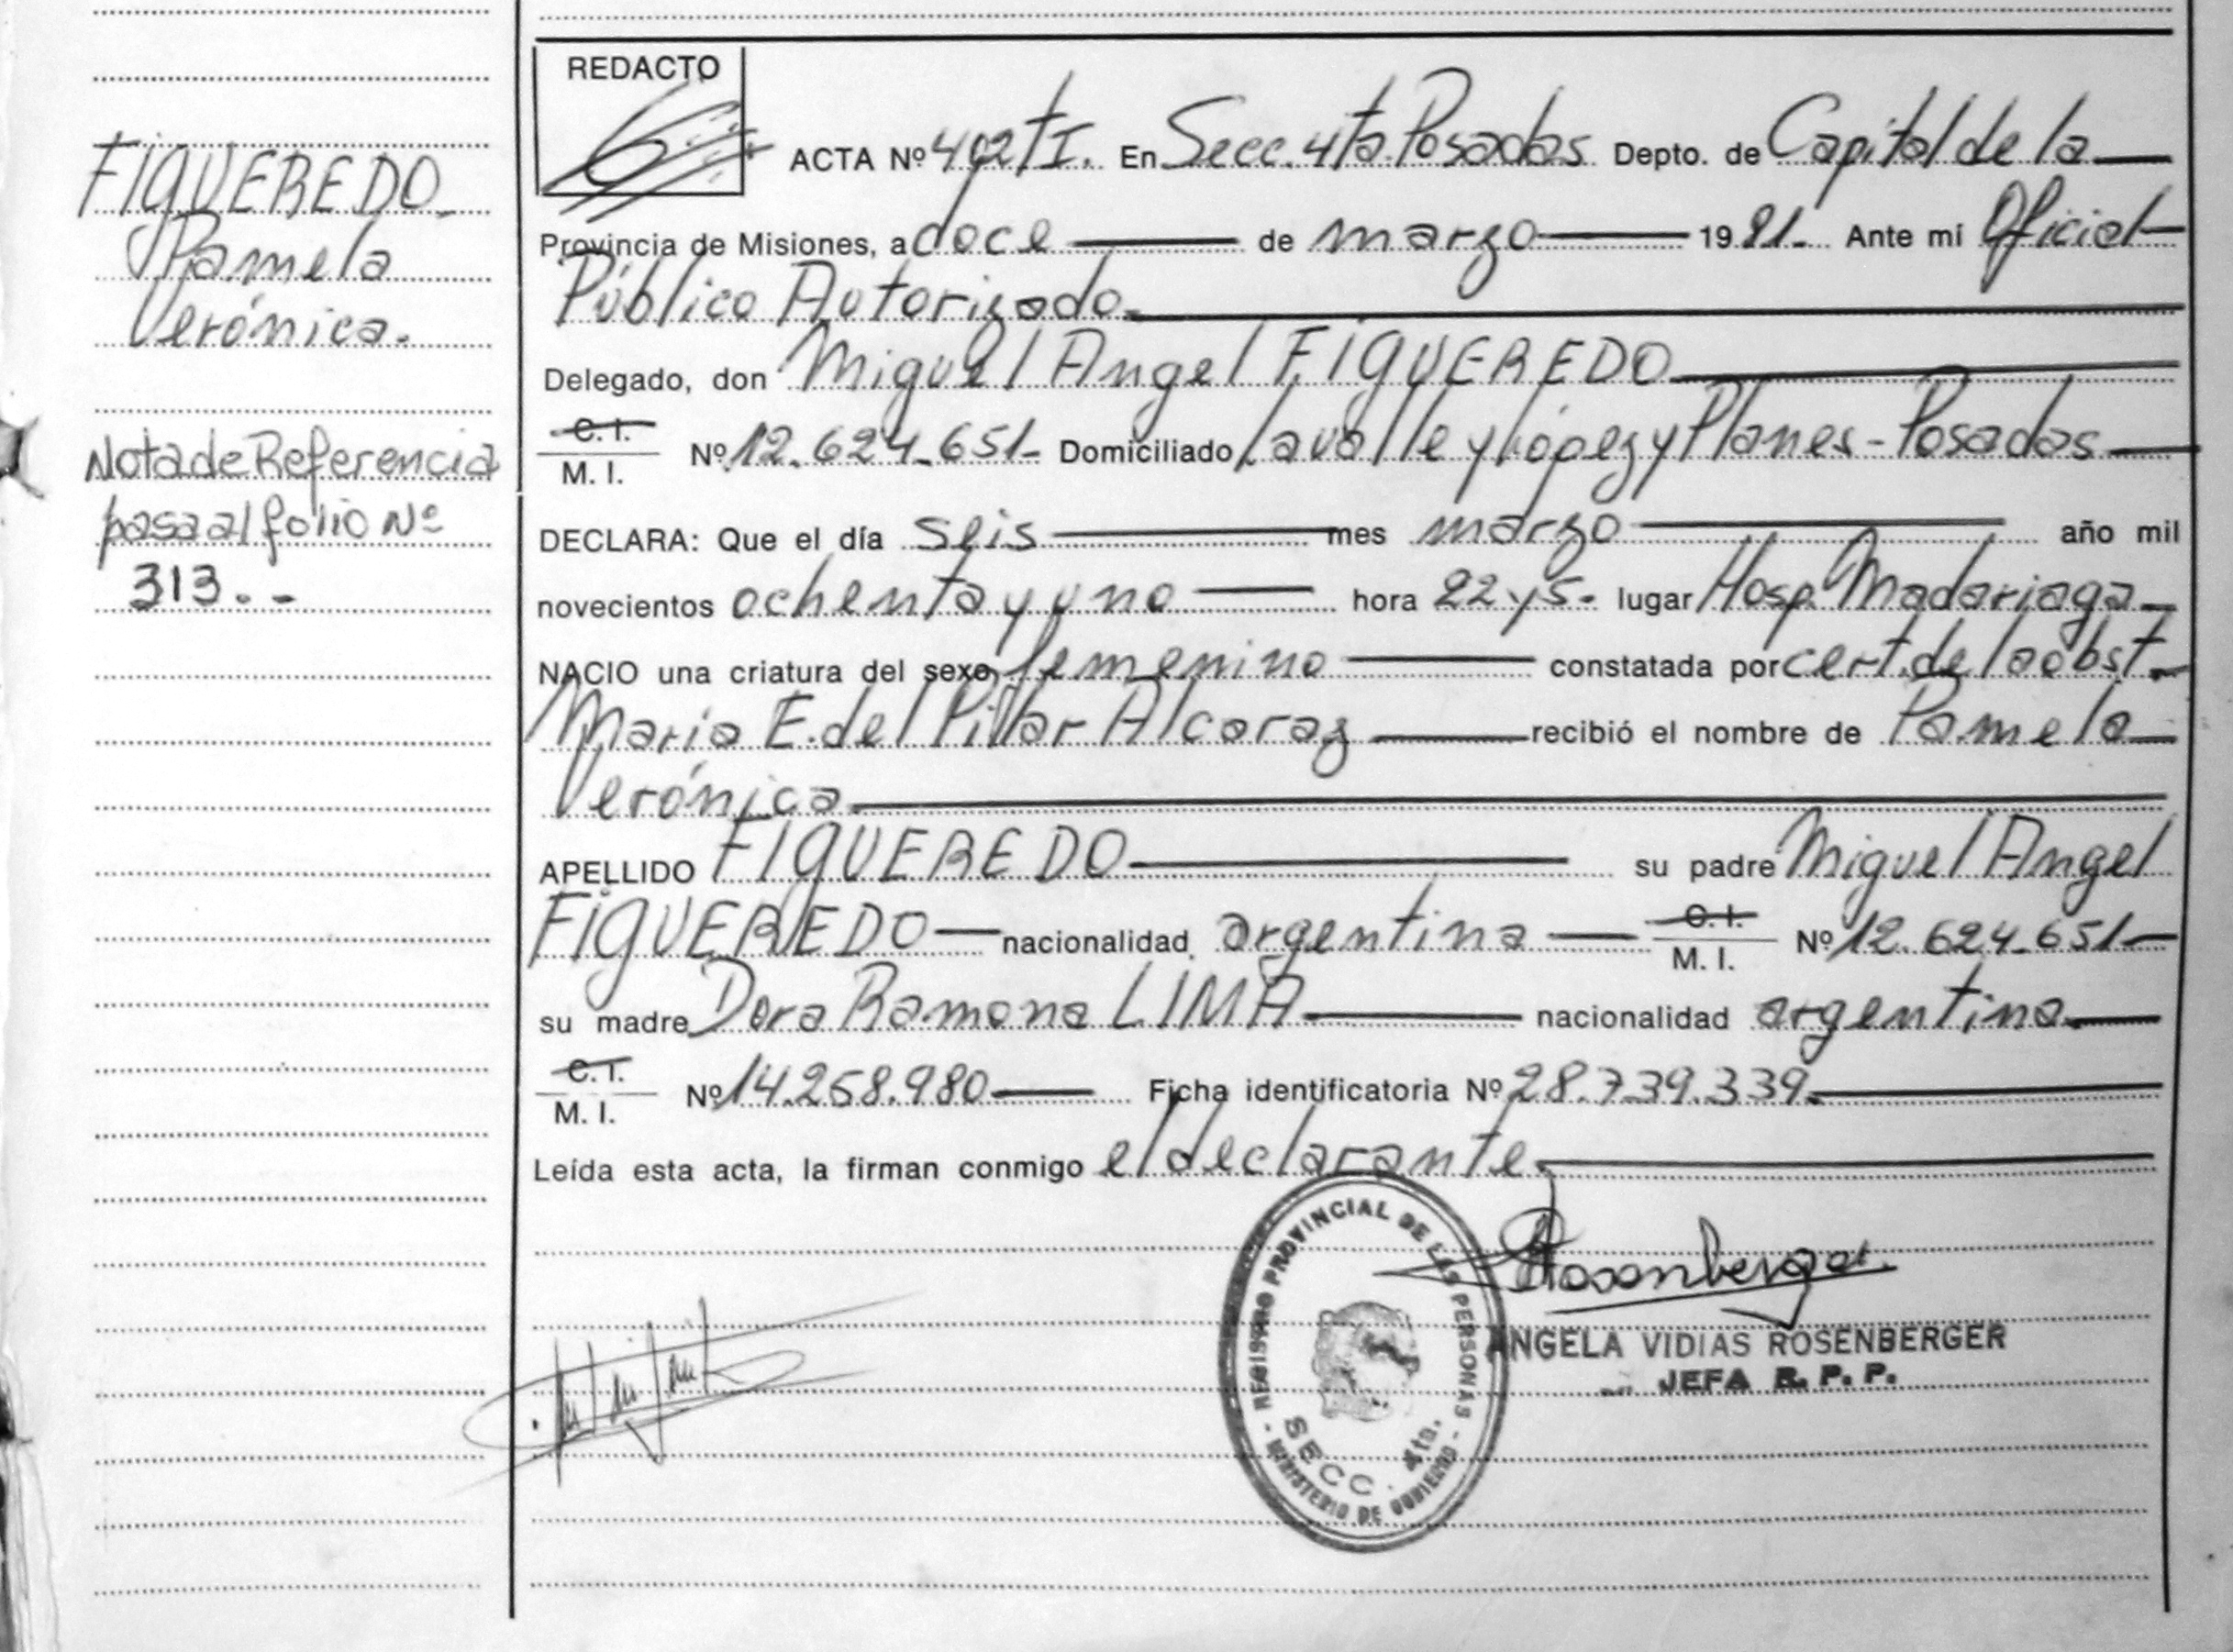 FIGUEREDO
Pamela
Verónica.
Nota de Referencia
pasa al folio Nº
313.-
REDACTO
ACTA Nº 492 tI. En Secc. 4ta. Posadas Depto. de Capital de la
Provincia de Misiones, a doce de marzo 1981. Ante mi Oficial
Público Autorizado.
Delegado, don Miguel Angel FIGUEREDO
C. I.
M. I. Nº 12.624.651- Domiciliado Lavalle y López y Planes - Posadas
DECLARA: Que el día seis mes marzo año mil
novecientos ochenta y uno hora 22 y 5. lugar Hosp. Madariaga
NACIO una criatura del sexo femenino constatada por cert. de la obst.
Maria E. del Pillar Alcaraz recibió el nombre de Pamela
Verónica
APELLIDO FIGUEREDO su padre Miguel Angel
FIGUEREDO nacionalidad argentina C. I. M. I. Nº 12.624.651
su madre Dora Ramona LIMA nacionalidad argentina
C. I.
M. I. Nº 14.258.980 Ficha identificatoria Nº 28.739.339.
Leída esta acta, la firman conmigo el declarante.
REGISTRO PROVINCIAL DE LAS PERSONAS
SECC. 4ta.
MINISTERIO DE GOBIERNO
Rosenberger
ANGELA VIDIAS ROSENBERGER
JEFA R. P. P.